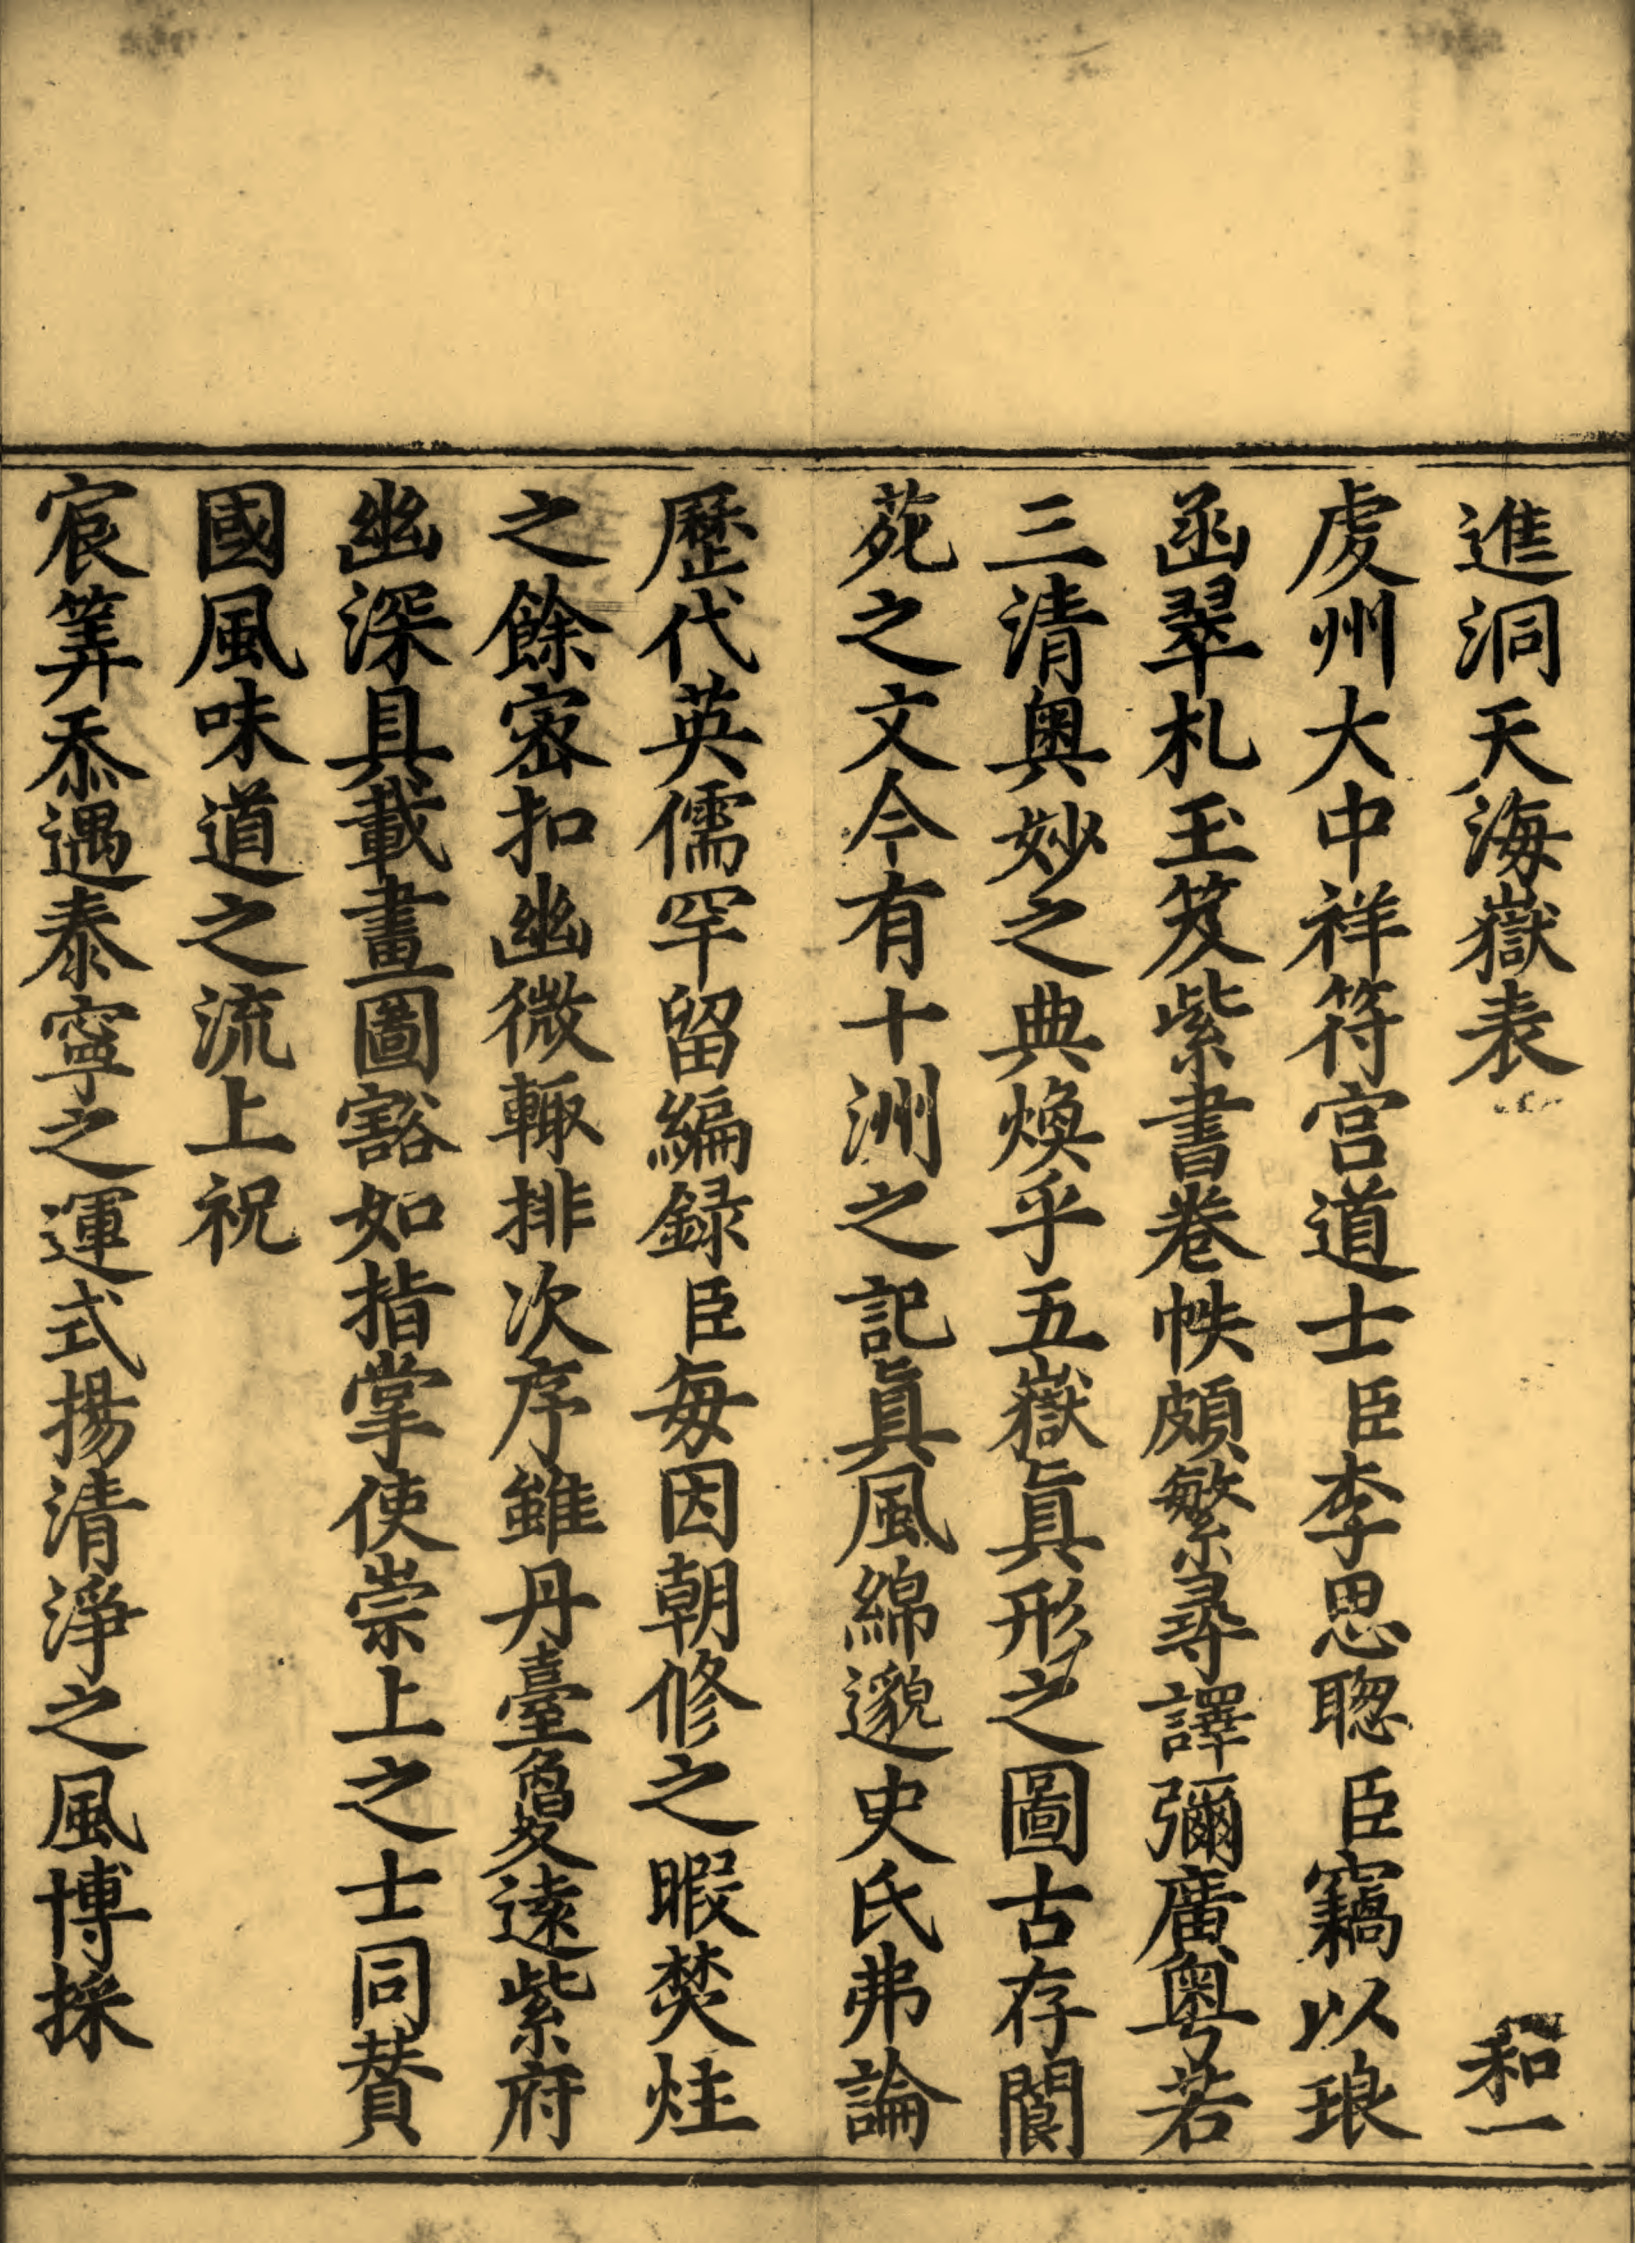 進洞天海嶽表　和一
處州大中祥符宫道士臣李思聰臣竊以琅
函翠札玉笈紫書卷帙頗繁尋譯彌廣粤若
三清奥妙之典煥乎五嶽眞形之圖古存閬
苑之文今有十洲之記眞風綿邈史氏弗論
歷代英儒罕留編録臣毎因朝修之暇焚炷
之餘宻扣幽微輙排次序雖丹臺夐遠紫府
幽深具載畫圖豁如指掌使崇上之士同賛
國風味道之流上祝
宸筭忝遇泰寧之運式揚清淨之風博採